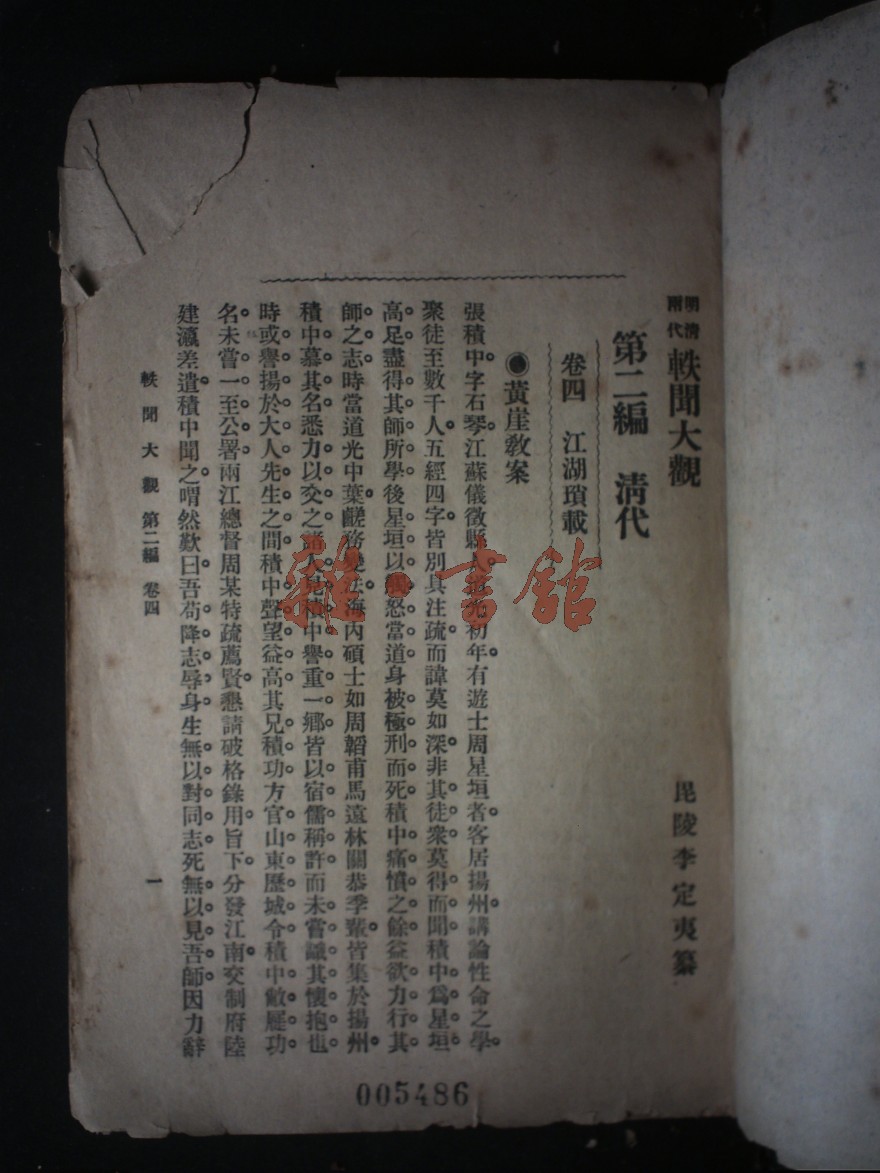 明清兩代 軼聞大觀
毘陵李定夷纂
第二編 清代
卷四 江湖瑣載
●黃崖教案
張積中字石琴江蘇儀徵縣人道光初年有遊士周星垣者客居揚州講論性命之學。
聚徒至數千人五經四字皆別具注疏而諱莫如深。非其徒衆莫得而聞積中爲星垣
高足盡得其師所學後星垣以觸怒當道身被極刑而死積中痛憤之餘益欲力行其
師之志時當道光中葉鹺務變法海內碩士如周韜甫馬遠林關恭季輩皆集於揚州
積中慕其名悉力以交之諸人見積中譽重一鄉皆以宿儒稱許而未嘗識其懷抱也
時或譽揚於大人先生之間積中聲望益高其兄積功方官山東歷城令積中敝屣功
名未嘗一至公署兩江總督周某特疏薦賢懇請破格錄用旨下分發江南交制府陸
建瀛差遣積中聞之喟然歎曰吾苟降志辱身生無以對同志死無以見吾師因力辭
軼聞大觀 第二編 卷四
一
005486
雜·書館